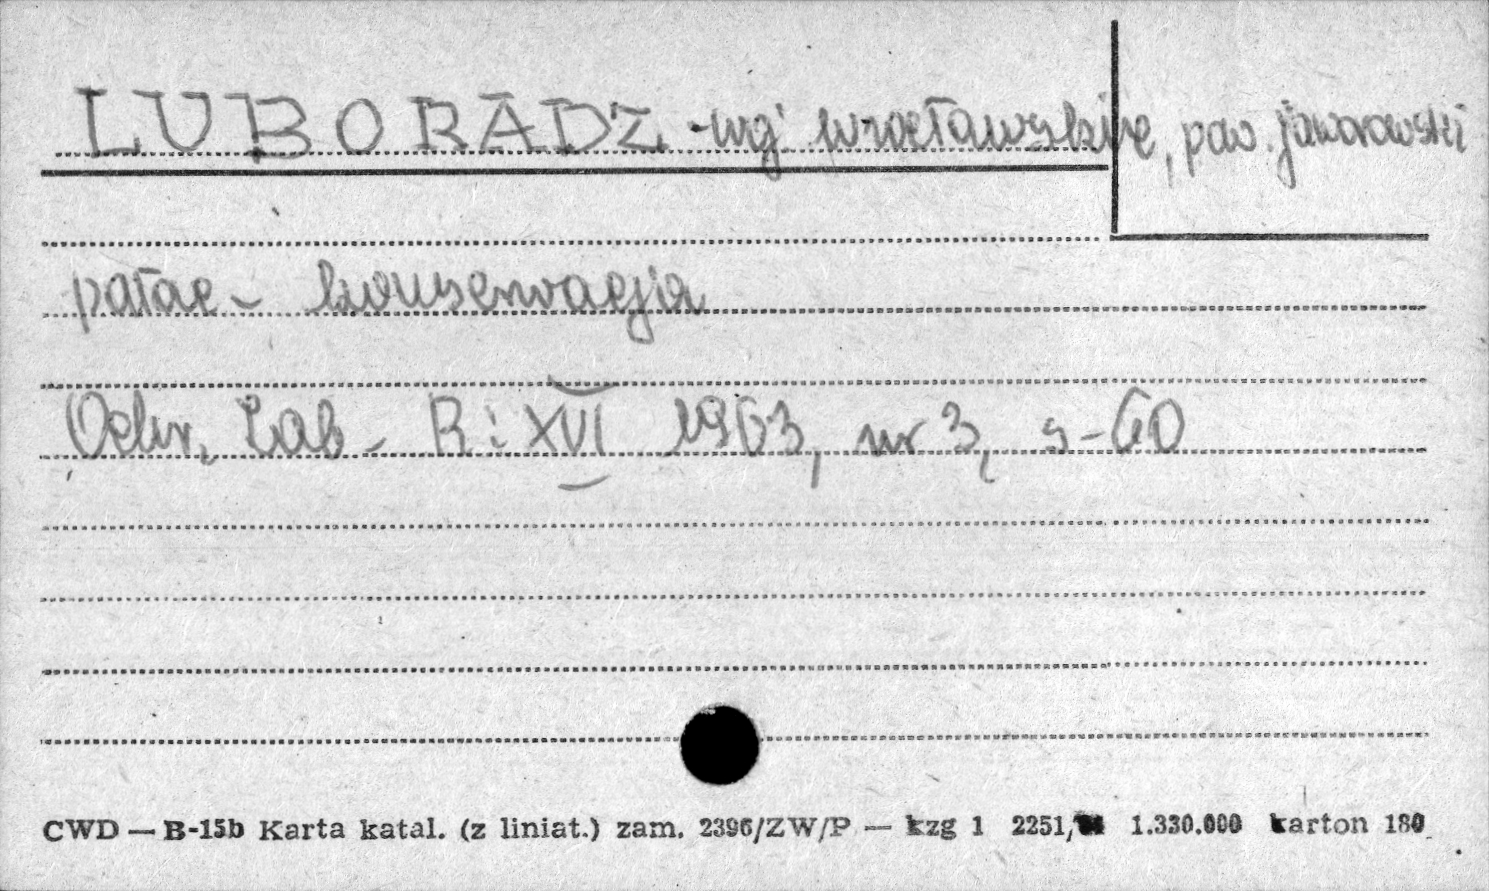 LUBORADZ - woj. wrocławskie, pow. jaworowski
pałac - konserwacja
Ochr. Zab - R: XVI 1963, nr 3, s-60
CWD — B-15b Karta katal. (z liniat.) zam. 2396/ZW/P — kzg 1 2251/ 1.330.000 karton 180